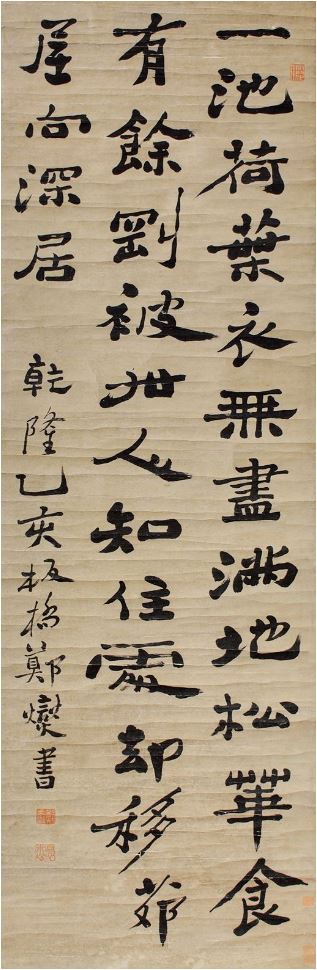 一池荷葉衣無盡滿地松華食
有餘剛被世人知住處却移茆
屋向深居 乾隆乙亥板橋鄭燮書